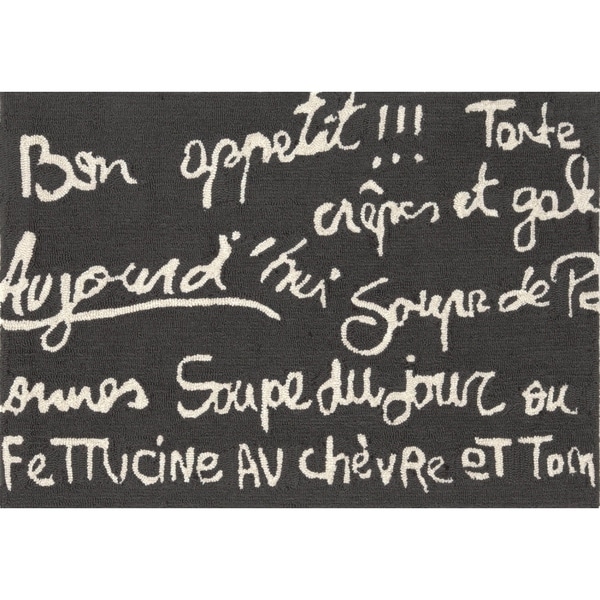 Bon appetit!!! Tarte
crêpes et gal
Aujourd'hui Soupe de Po
ommes Soupe du jour ou
FeTTUCINE AU chèvRe eT Tom